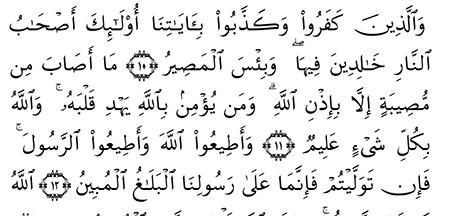 وَٱلَّذِينَ كَفَرُوا۟ وَكَذَّبُوا۟ بِـَٔايَـٰتِنَآ أُو۟لَـٰٓئِكَ أَصْحَـٰبُ
ٱلنَّارِ خَـٰلِدِينَ فِيهَا ۖ وَبِئْسَ ٱلْمَصِيرُ ١٠ مَآ أَصَابَ مِن
مُّصِيبَةٍ إِلَّا بِإِذْنِ ٱللَّهِ ۗ وَمَن يُؤْمِنۢ بِٱللَّهِ يَهْدِ قَلْبَهُۥ ۚ وَٱللَّهُ
بِكُلِّ شَىْءٍ عَلِيمٌ ١١ وَأَطِيعُوا۟ ٱللَّهَ وَأَطِيعُوا۟ ٱلرَّسُولَ ۚ
فَإِن تَوَلَّيْتُمْ فَإِنَّمَا عَلَىٰ رَسُولِنَا ٱلْبَلَـٰغُ ٱلْمُبِينُ ١٢ ٱللَّهُ